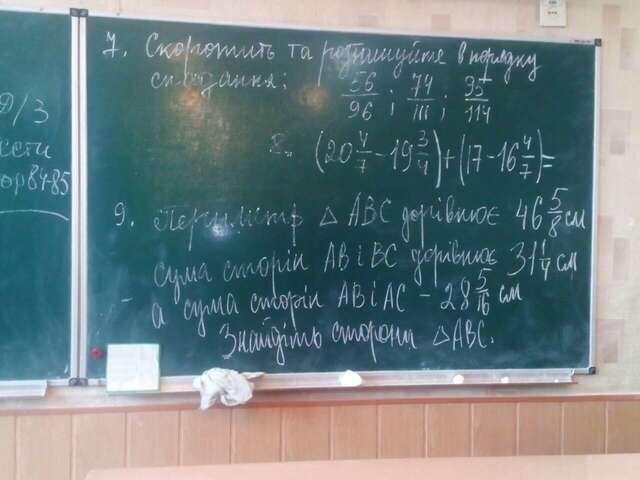 Д/З
ости
8485
7. Скоротить та розташуйте в порядку
спадання: 56/96 ; 74/111 ; 95/114
8. (20 4/7 - 19 3/4) + (17 - 16 4/7) =
9. Периметр △ ABC дорівнює 46 5/8 см
сума сторін AB і BC дорівнює 31 1/4 см
- а сума сторін AB і AC - 28 5/16 см
Знайдіть сторони △ABC.